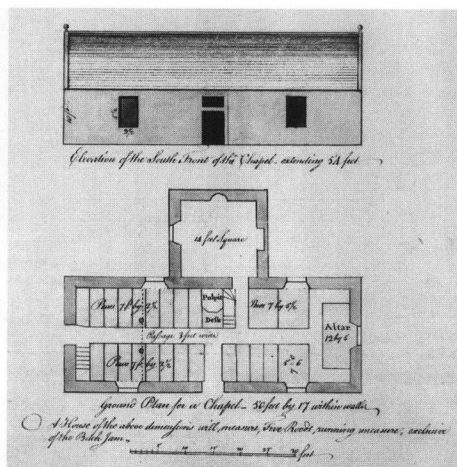 Elevation of the South Front of the Chapel - extending 54 feet
14 feet Square
Pews 7 f by 2½
Pulpit
Desk
Pews 7 by 2½
Altar
12 by 6
Passage 3 feet wide
Pews 7 f by 2½
Ground Plan for a Chapel - 50 feet by 17 within walls
A House of the above dimensions will measure, Five Roods, running measure, exclusive
of the Back Jam.
feet